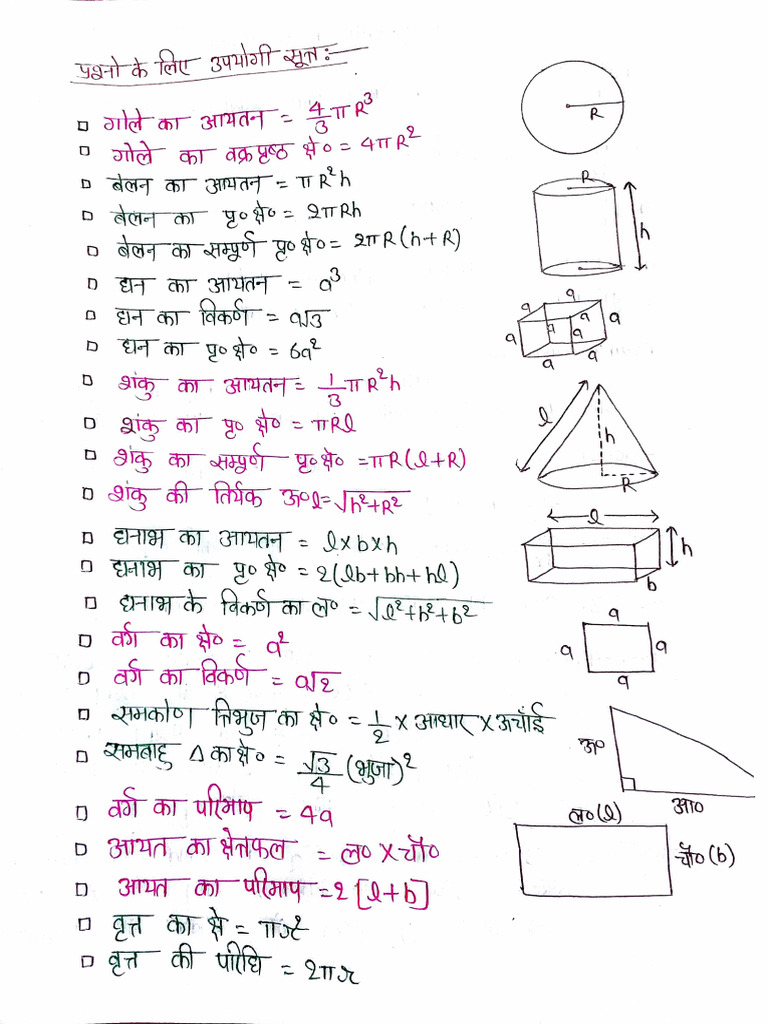 प्रश्नो के लिए उपयोगी सूत्र :-
गोले का आयतन = 4/3 πR³
R
गोले का वक्रपृष्ठ क्षे० = 4πR²
बेलन का आयतन = πR²h
R
बेलन का पृ० क्षे० = 2πRh
h
बेलन का सम्पूर्ण पृ० क्षे० = 2πR(h+R)
घन का आयतन = a³
a a
घन का विकर्ण = a√3
a a a a a
घन का पृ० क्षे० = 6a²
a a
शंकु का आयतन = 1/3 πR²h
शंकु का पृ० क्षे० = πRl
l h
शंकु का सम्पूर्ण पृ० क्षे० = πR(l+R)
शंकु की तिर्यक ऊ० l = √h²+R²
R
l
घनाभ का आयतन = l×b×h
h
घनाभ का पृ० क्षे० = 2(lb+bh+hl)
b
घनाभ के विकर्ण का ल० = √l²+h²+b²
a
वर्ग का क्षे० = a²
a a
वर्ग का विकर्ण = a√2
a
समकोण त्रिभुज का क्षे० = 1/2 × आधार × ऊचाँई
समबाहु Δ का क्षे० = √3/4 (भुजा)²
ऊ०
वर्ग का परिमाप = 4a
आ०
ल०(l)
आयत का क्षेत्रफल = ल० × चौ०
चौ०(b)
आयत का परिमाप = 2[l+b]
वृत्त का क्षे = πr²
वृत्त की परिधि = 2πr